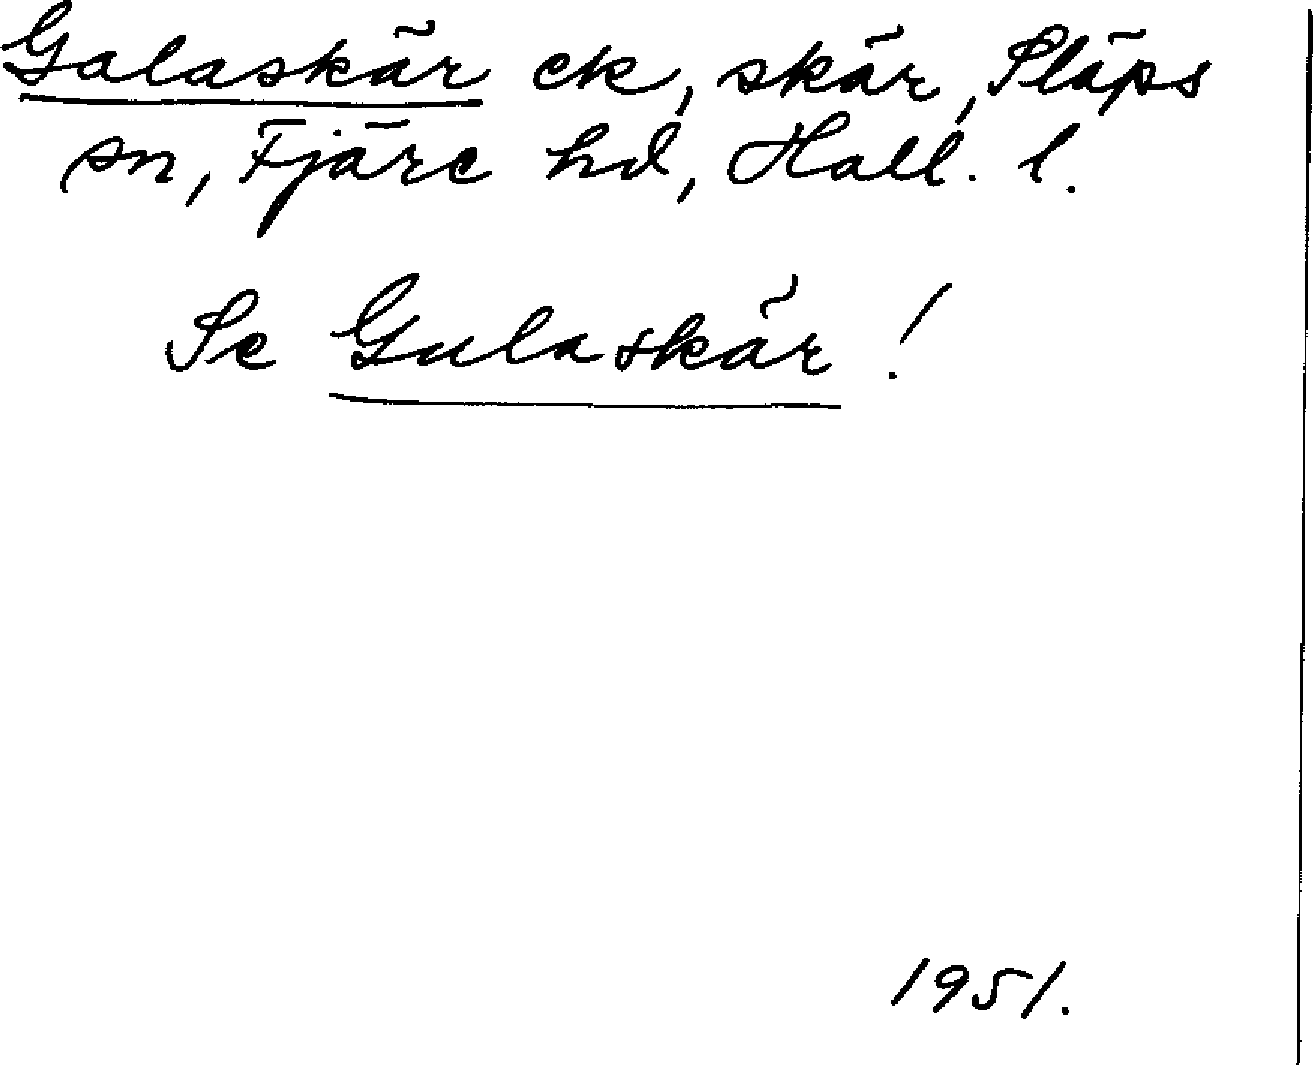 Galaskär ek, skär, Släps
sn, Fjäre hd, Hall. l.
Se Gulaskär!
1951.